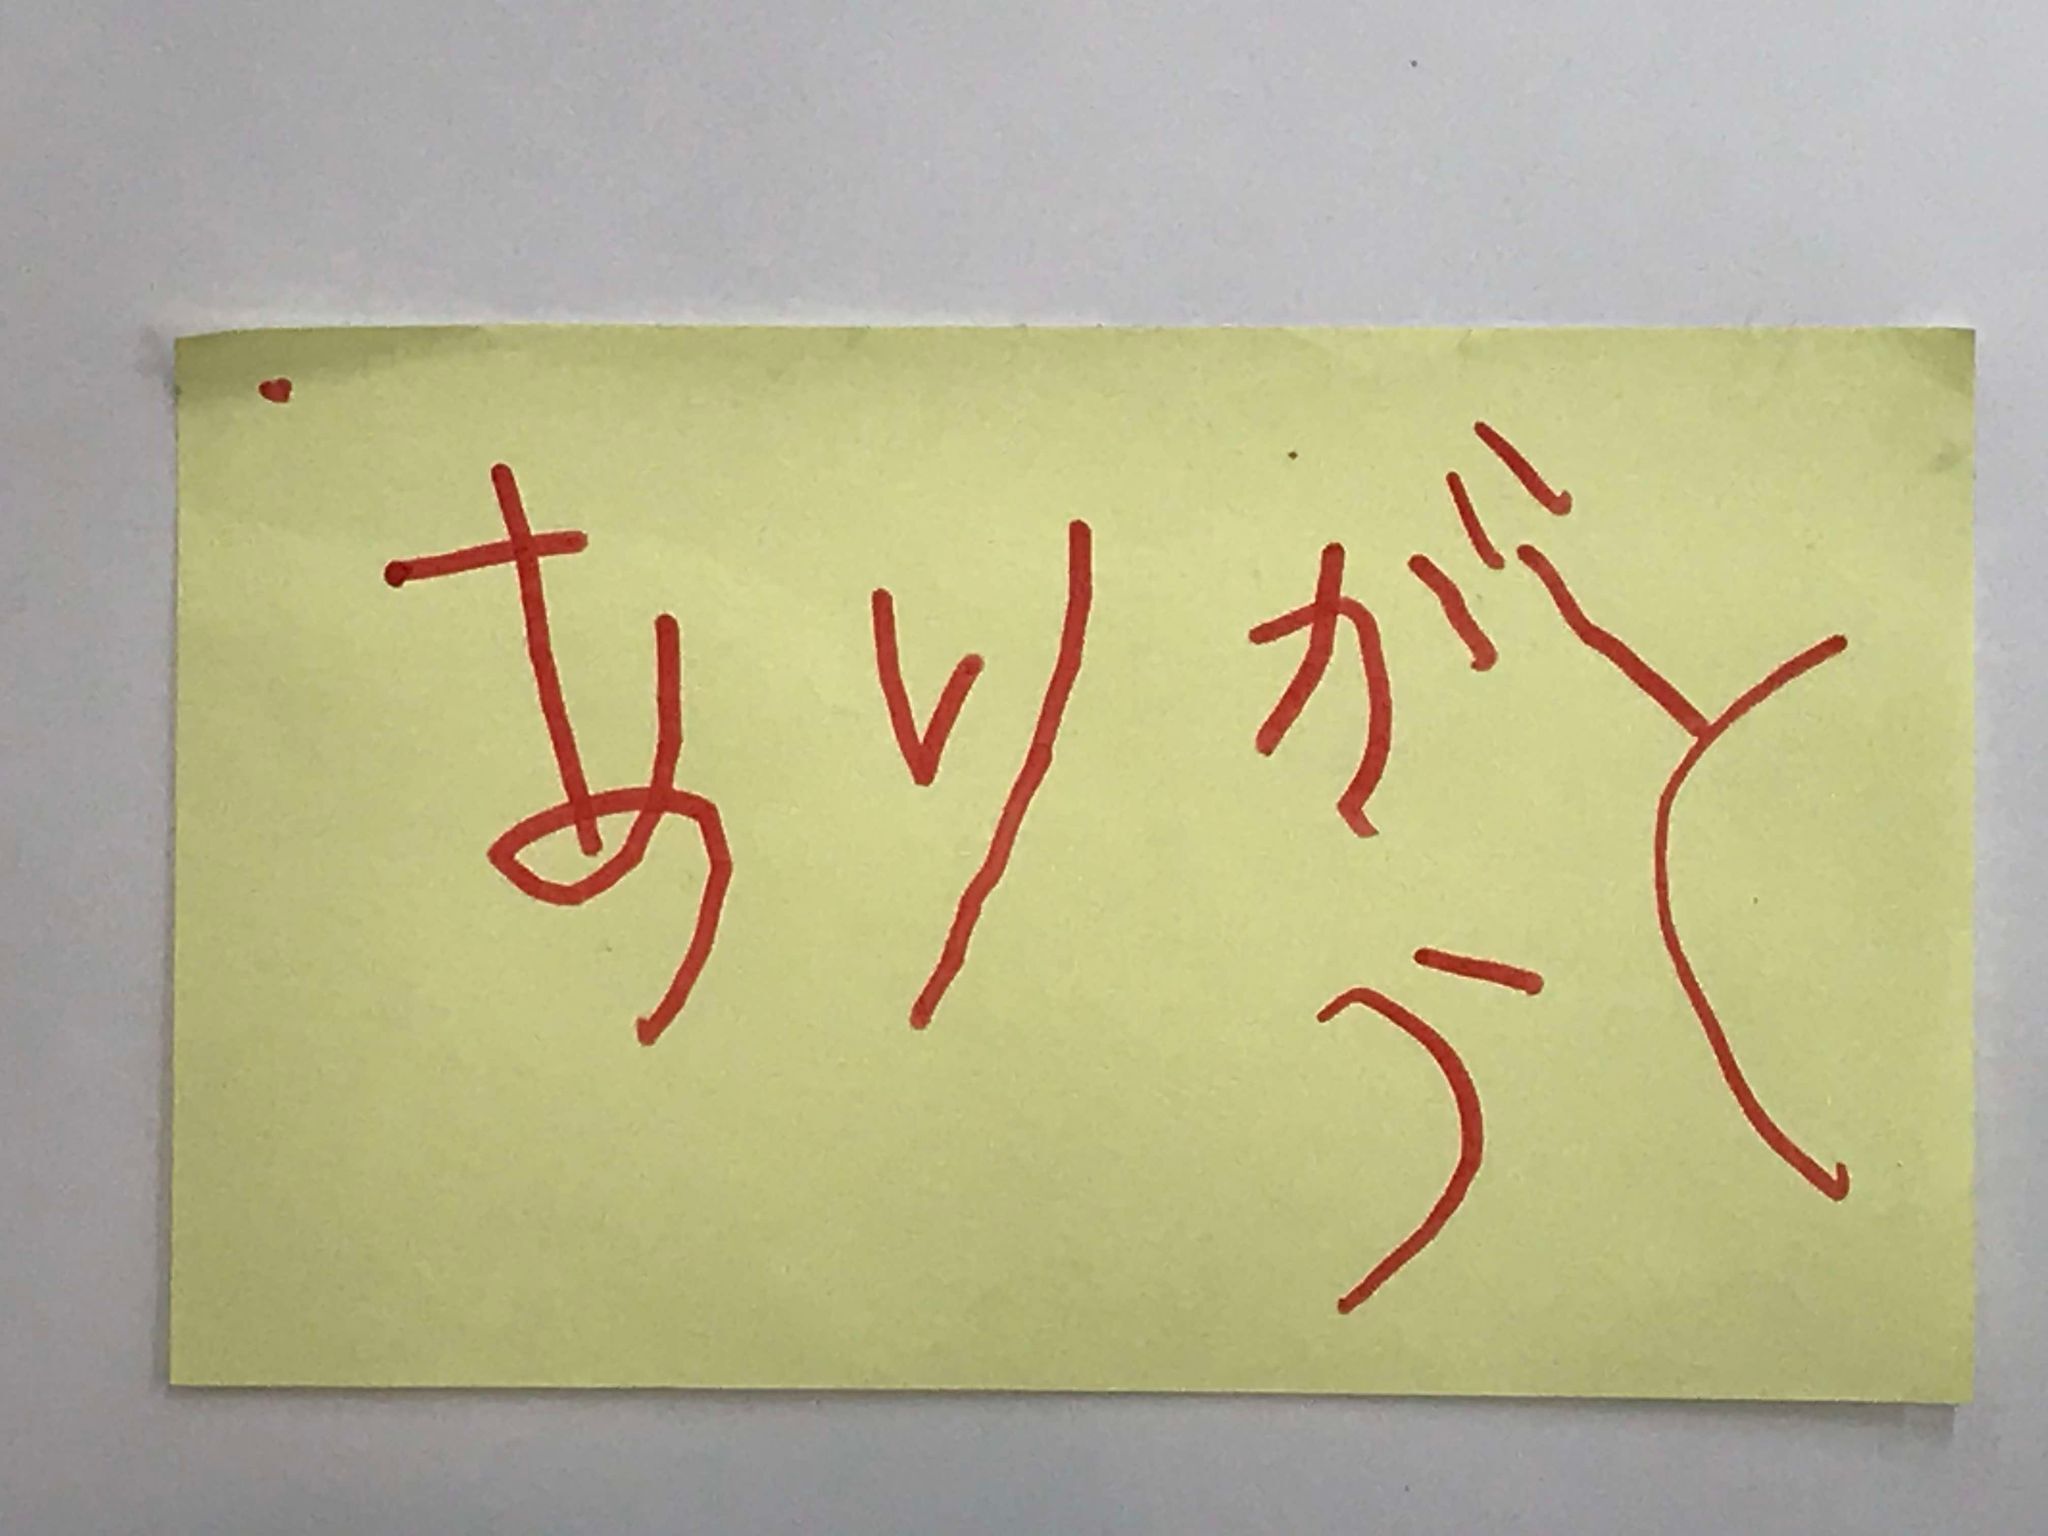 ありがと
う